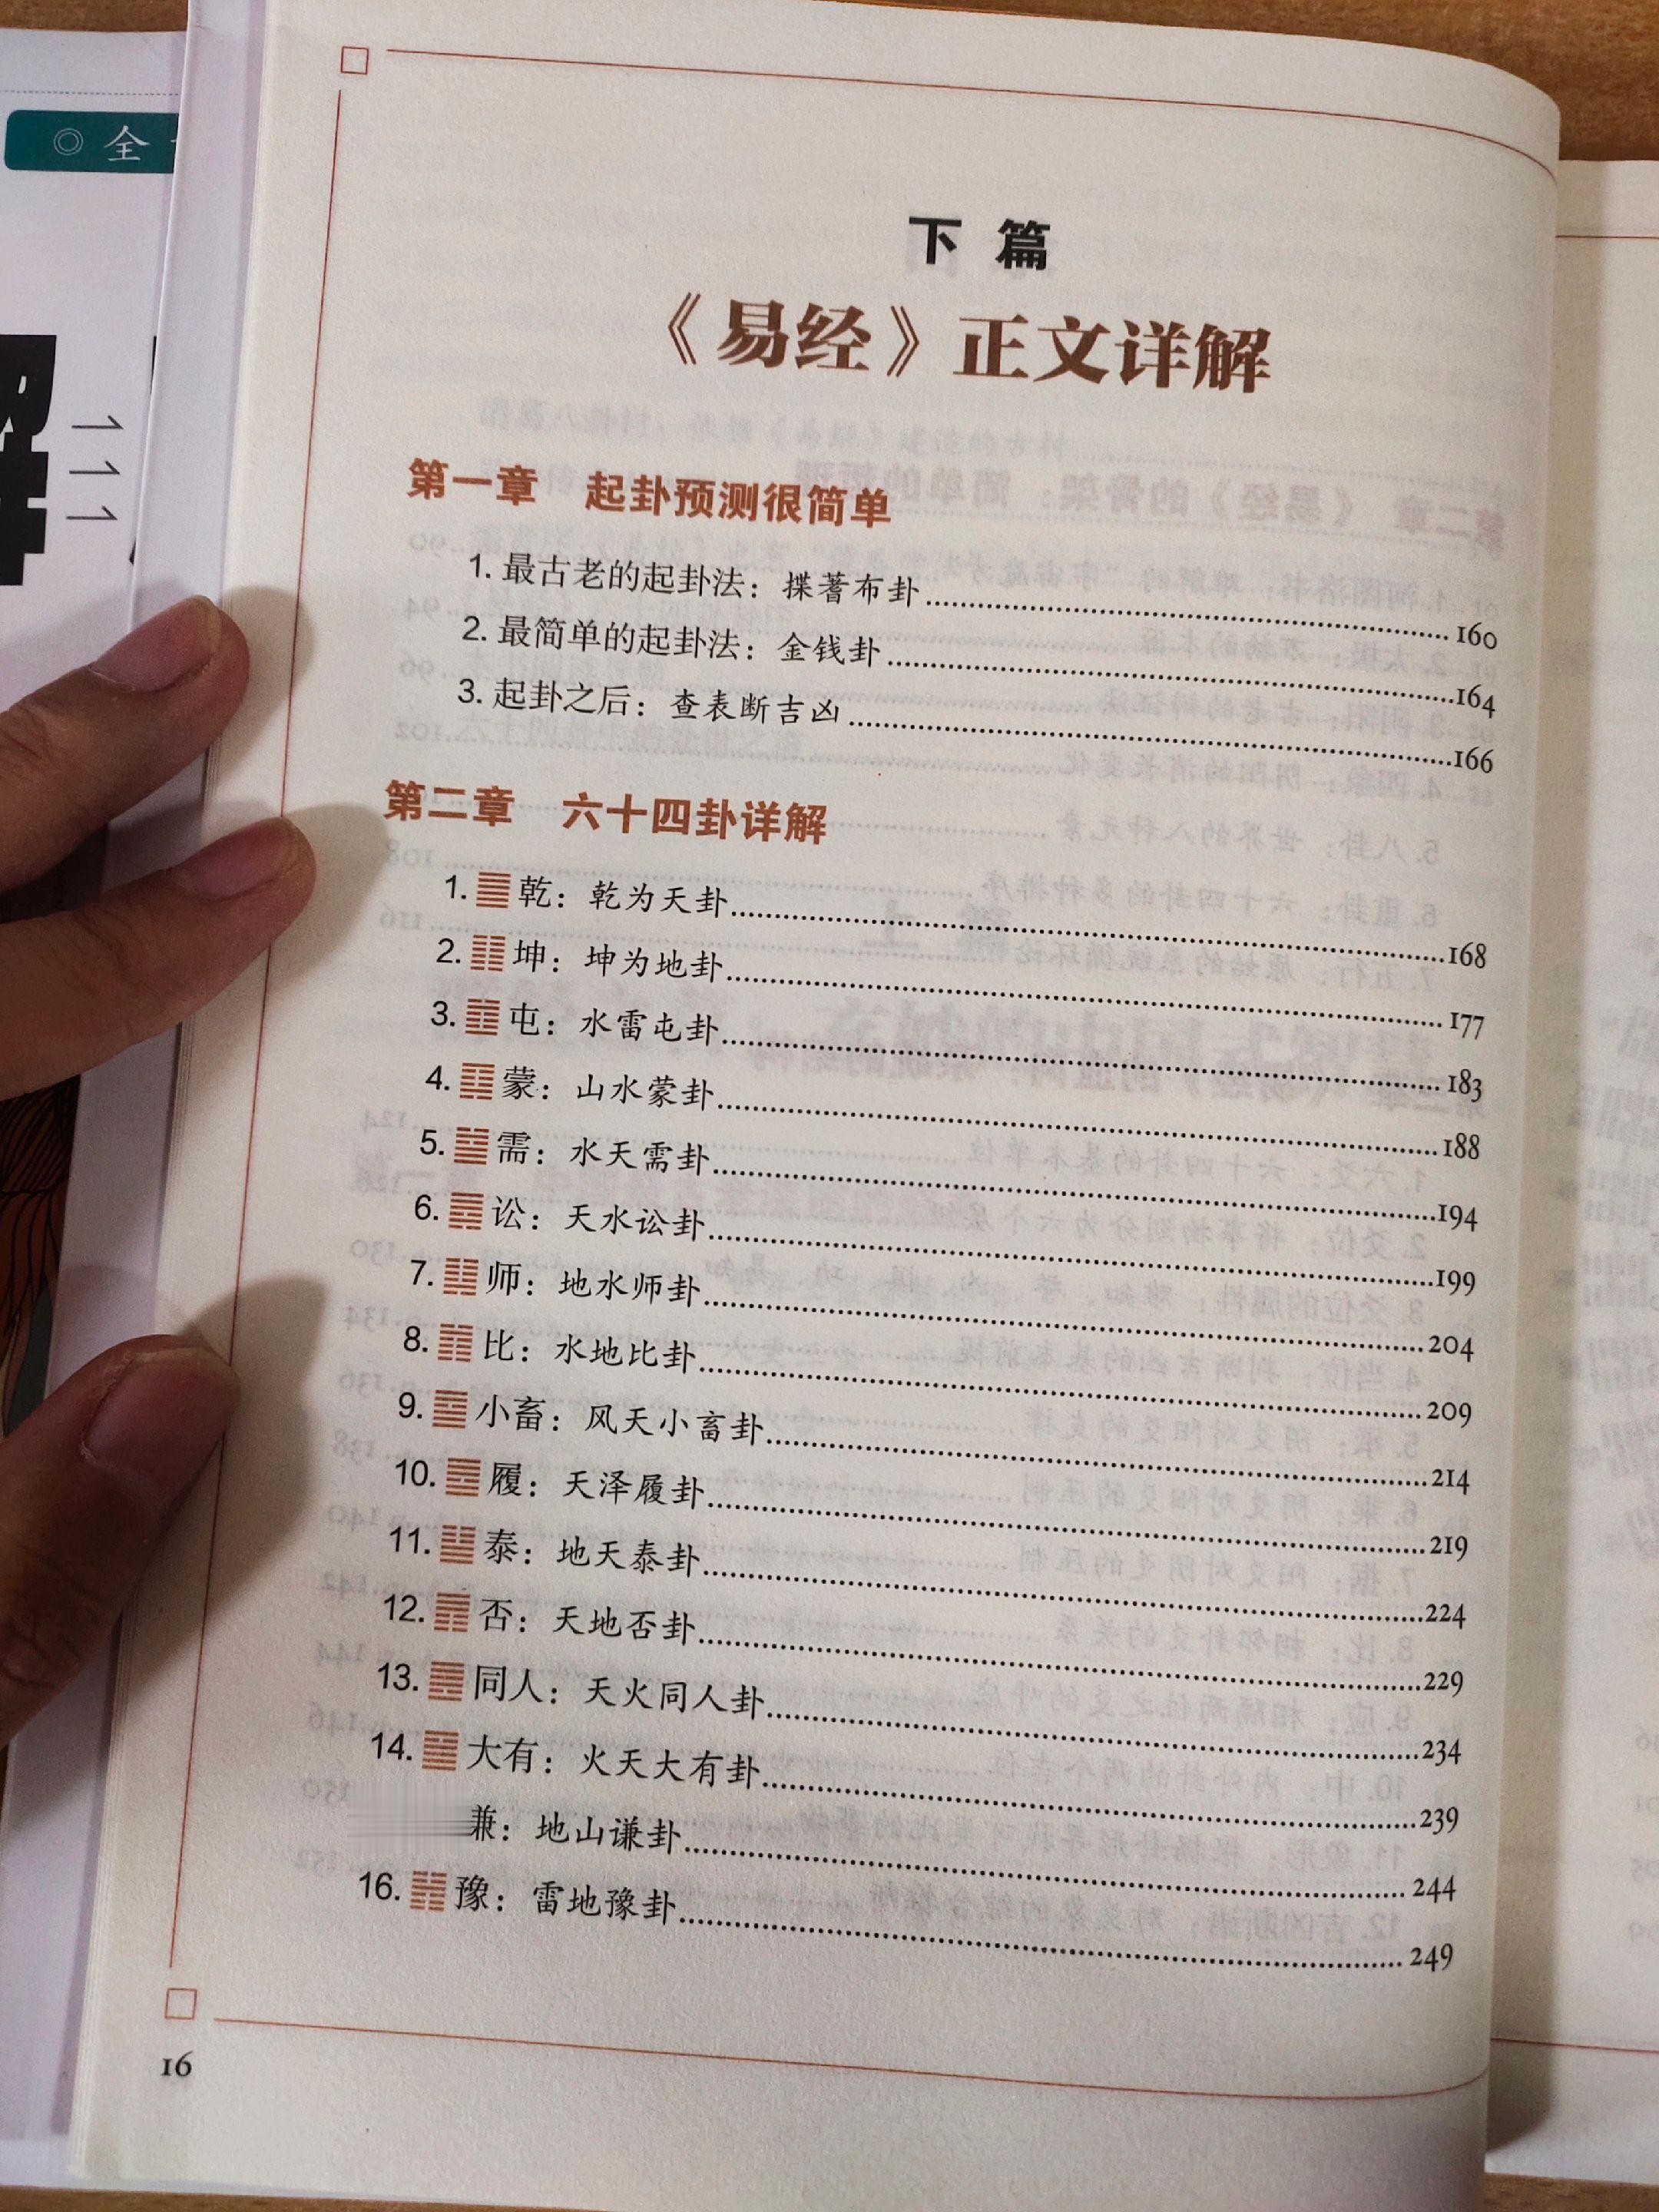 全
下 篇
《易经》正文详解
第一章 起卦预测很简单
1. 最古老的起卦法：揲蓍布卦 160
2. 最简单的起卦法：金钱卦 164
3. 起卦之后：查表断吉凶 166
第二章 六十四卦详解
1. ䷀ 乾：乾为天卦 168
2. ䷁ 坤：坤为地卦 177
3. ䷂ 屯：水雷屯卦 183
4. ䷃ 蒙：山水蒙卦 188
5. ䷄ 需：水天需卦 194
6. ䷅ 讼：天水讼卦 199
7. ䷆ 师：地水师卦 204
8. ䷇ 比：水地比卦 209
9. ䷈ 小畜：风天小畜卦 214
10. ䷉ 履：天泽履卦 219
11. ䷊ 泰：地天泰卦 224
12. ䷋ 否：天地否卦 229
13. ䷌ 同人：天火同人卦 234
14. ䷍ 大有：火天大有卦 239
：地山谦卦 244
16. ䷏ 豫：雷地豫卦 249
16